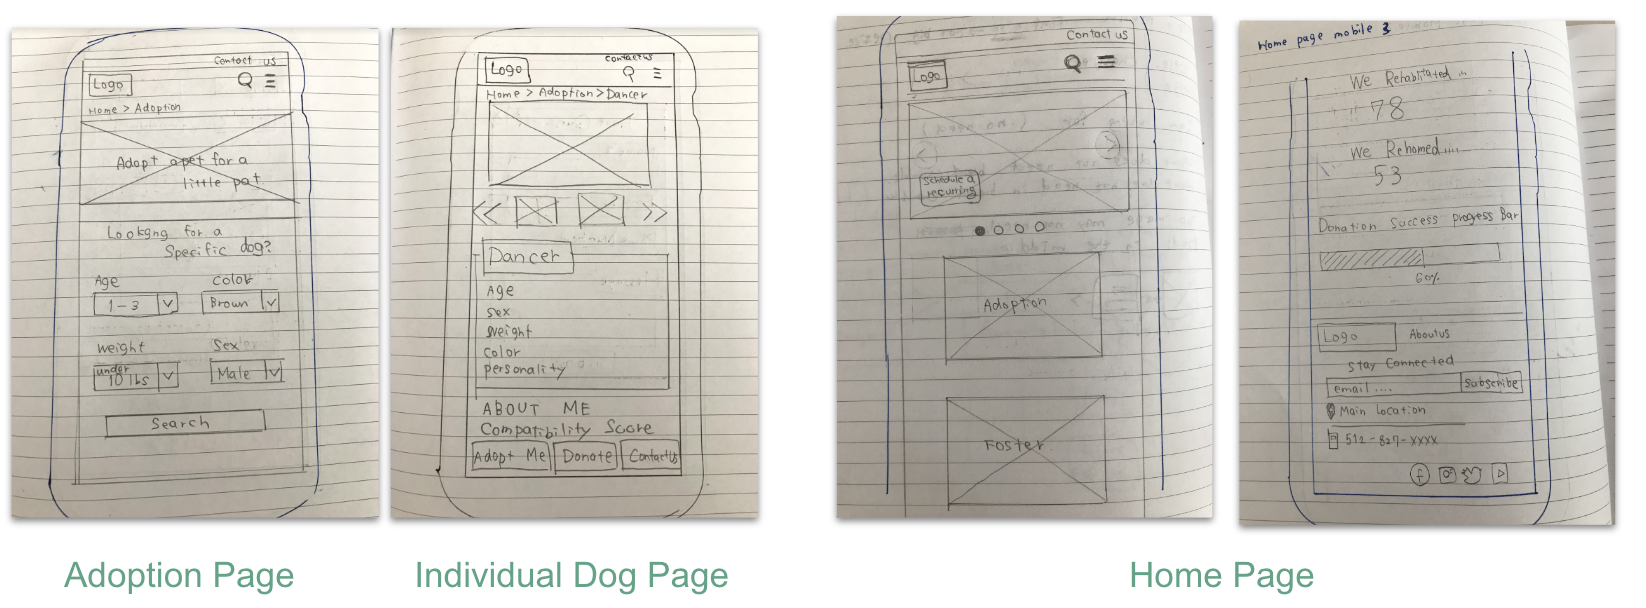 Contact us
Logo
Home > Adoption
Adopt a pet for a
little pat
Lookgng for a
Specific dog?
Age
color
1-3
Brown
weight
Sex
under
10 lbs
Male
Search
Contact us
Logo
Home > Adoption > Dancer
Dancer
Age
sex
weight
color
personality
ABOUT ME
Compatibility Score
Adopt Me
Donote
Contact Us
Contact us
Logo
Schedule a
recurring
Adoption
Foster
Home page mobile 3
We Rehablitated ...
78
We Rehomed ....
53
Donation Success progess Bar
60%
Logo
About us
Stay Connected
email ....
Subscribe
Main Location
512-827-xxxx
Adoption Page
Individual Dog Page
Home Page